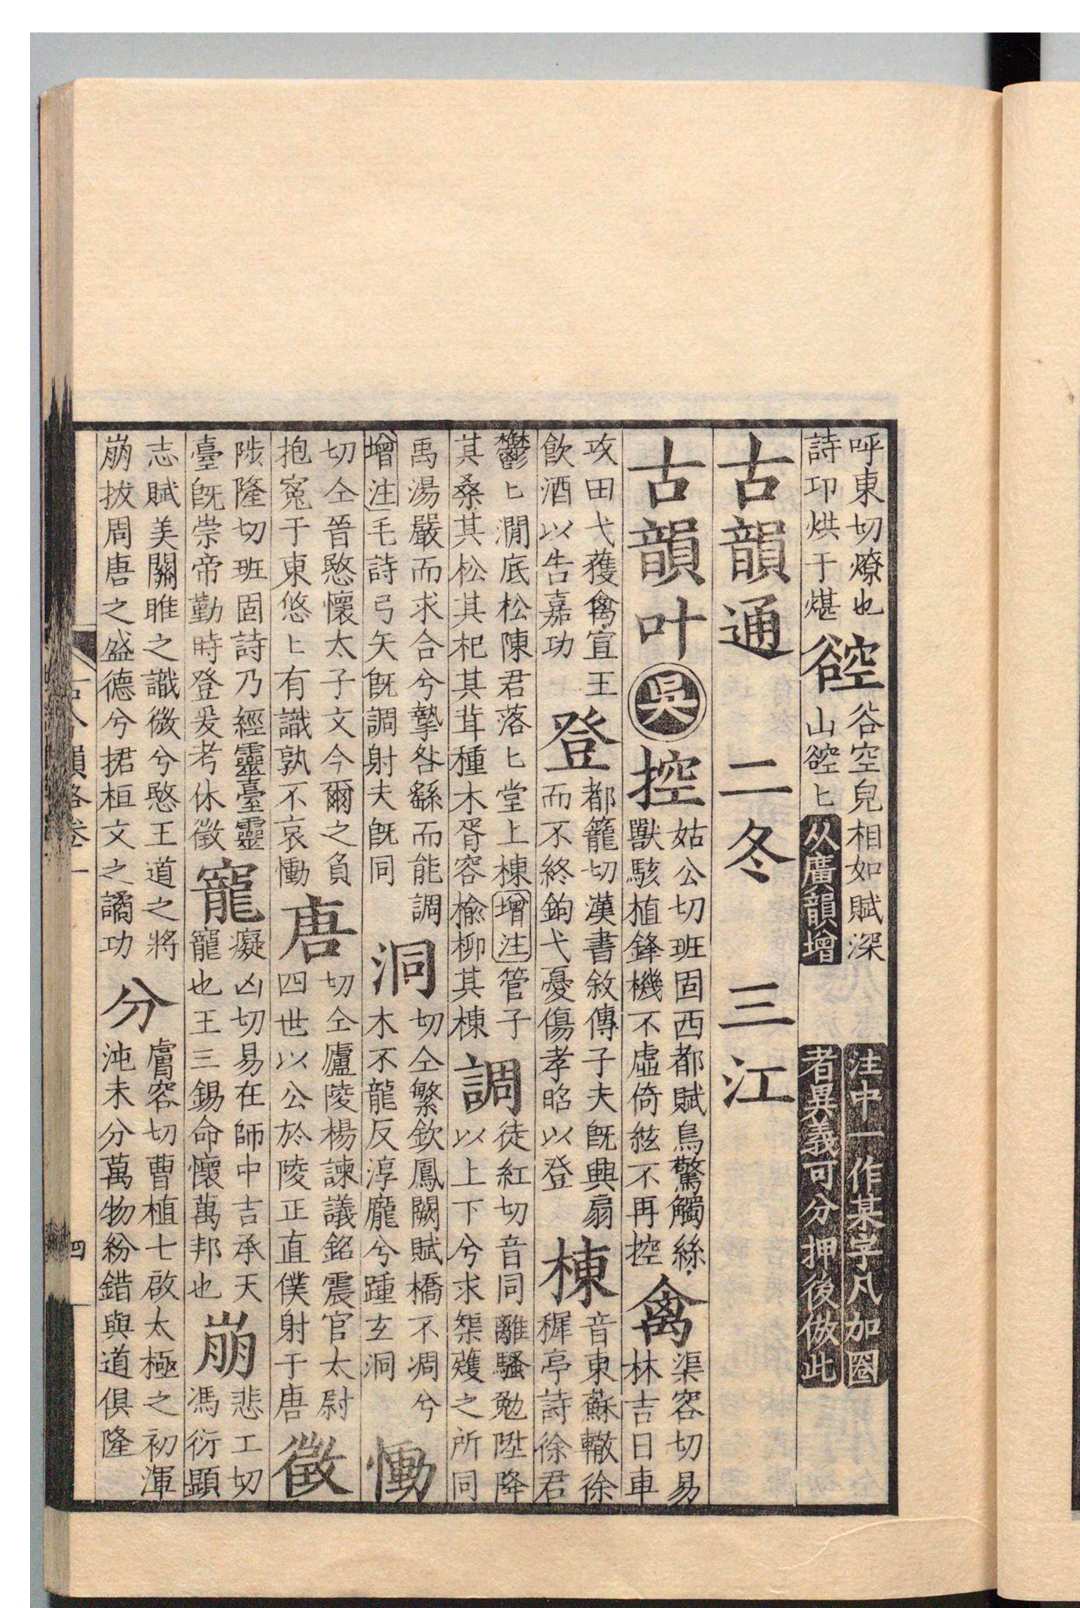 呼東切燎也
詩卬烘于煁
谾
谷空皃相如賦深
山谾〻
从廣韻增
注中一作某字凡加圈
者異義可分押後倣此
古韻通　二冬　三江
古韻叶
吳
控
姑公切班固西都賦鳥驚觸絲
獸駭植鋒機不虛倚絃不再控
禽
渠容切易林吉日車
攻田弋獲禽宣王
飲酒以告嘉功
登
都籠切漢書敘傳子夫旣興扇
而不終鉤弋憂傷孝昭以登
棟
音東蘇轍徐
穉亭詩徐君
鬱〻澗底松陳君落〻堂上棟
增注
管子
其桑其松其杞其茸種木胥容榆柳其棟
調
徒紅切音同離騷勉陞降
以上下兮求榘矱之所同
禹湯嚴而求合兮摯咎繇而能調
增注
毛詩弓矢旣調射夫旣同
洞
切仝繁欽鳳闕賦橋不凋兮
木不龍反淳龐兮踵玄洞
慟
切仝晉愍懷太子文今爾之負
抱寃于東悠〻有識孰不哀慟
唐
切仝廬陵楊諫議銘震官太尉
四世以公於陵正直僕射于唐
徵
陟隆切班固詩乃經靈臺靈
臺旣崇帝勤時登爰考休徵
寵
癡凶切易在師中吉承天
寵也王三錫命懷萬邦也
崩
悲工切
馮衍顯
志賦美關雎之識微兮愍王道之將
崩拔周唐之盛德兮捃桓文之譎功
分
膚容切曹植七啟太極之初渾
沌未分萬物紛錯與道俱隆
四